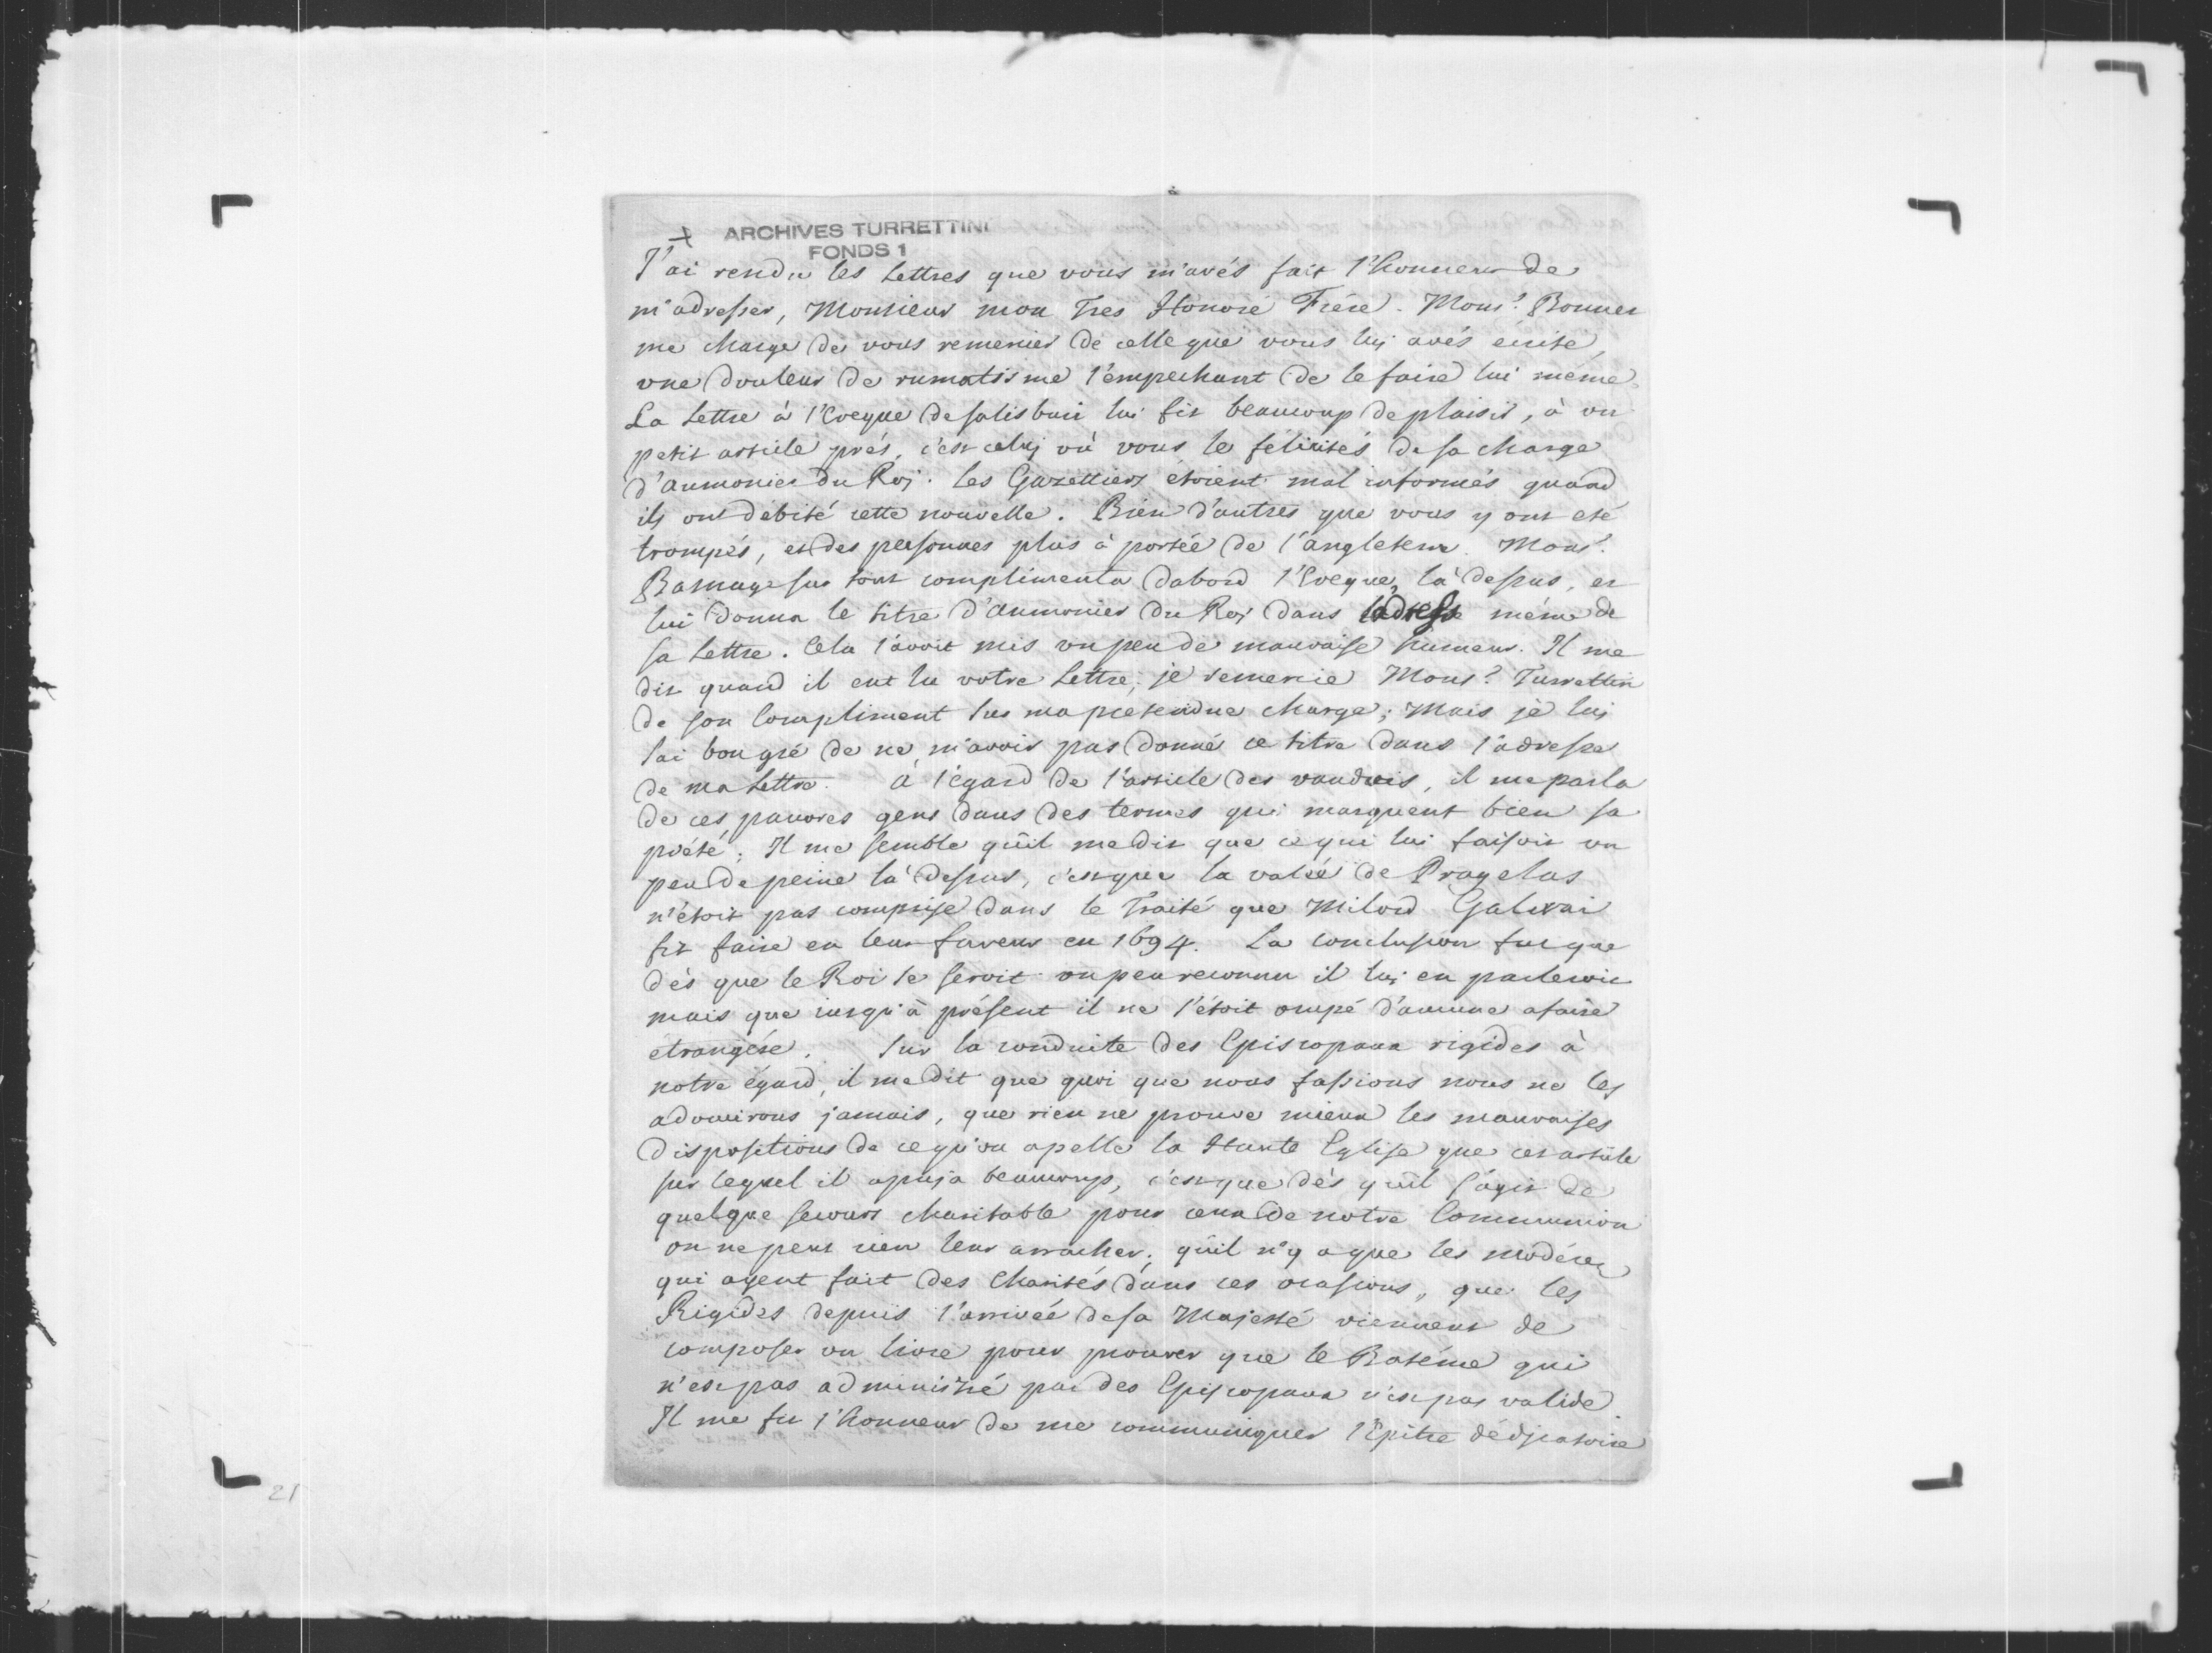 + ARCHIVES TURRETTINI
FONDS 1
J'ai rendu les Lettres que vous m'avés fait l'honneur de
m'adresser, Monsieur mon Tres Honoré Frére. Monsr. Bonnet
me charge de vous remercier de celle que vous lui avés écrite,
une douleur de rumatisme l'empechant de le faire lui méme.
La Lettre à l'Eveque de Salisburi lui fit beaucoup de plaisir, à un
petit article prés, c'est celuj où vous le félicités de sa charge
d'aumonier du Roj. les Gazettiers étoient mal informés quand
ils ont débité cette nouvelle. Bien d'autres que vous y ont eté
trompés, et des personnes plus à portée de l'angleterre. Monsr.
Basnage sur tout complimenta dabord l'Eveque là dessus, et
lui donna le titre d'aumonier du Roj dans l'adresse méme de
sa Lettre. Cela l'avoit mis un peu de mauvaise humeur. Il me
dit quand il eut lu votre Lettre, je remercie Monsr. Turrettin
de son Compliment sur ma pretendue charge; Mais je luj
sai bon gré de ne m'avoir pas donné ce titre dans l'adresse
de ma Lettre. à l'égard de l'article des vaudois, il me parla
de ces pauvres gens dans des termes qui marquent bien sa
piété; Il me semble qu'il me dit que ce qui lui faisoit un
peu de peine là dessus, c'est que la valée de Pragelas
n'étoit pas comprise dans le Traité que Milord Galwai
fit faire en leur faveur en 1694. La conclusion fut que
dès que le Roi se seroit un peu reconnu il luj en parleroit
mais que jusqu'à présent il ne s'étoit occupé d'aucune afaire
étrangére. Sur la conduite des Episcopaux rigides à
notre égard, il me dit que quoi que nous fassions nous ne les
adoucirons jamais, que rien ne prouve mieux les mauvaises
dispositions de ce qu'on apelle la Haute Eglise que cet article
sur lequel il apuja beaucoup, c'est que dès qu'il s'agit de
quelque secours charitable pour ceux de notre Communion
on ne peut rien leur arracher; qu'il n'y a que les modérez
qui ayent fait des Charités dans ces ocasions, que les
Rigides depuis l'arrivée de sa Majesté viennent de
composer un livre pour prouver que le Batéme qui
n'est pas administré par des Episcopaux n'est pas valide
Il me fit l'honneur de me communiquer l'Epitre dédicatoire
21